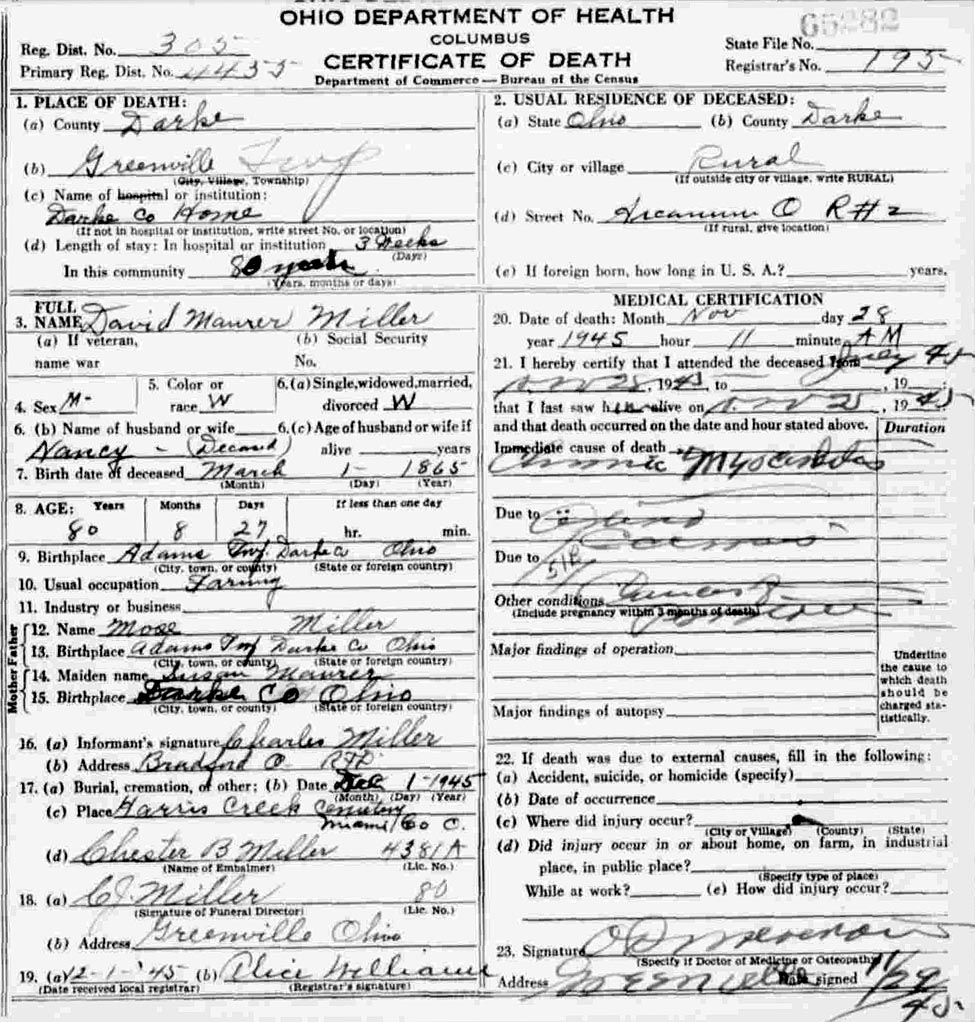 OHIO DEPARTMENT OF HEALTH
COLUMBUS
CERTIFICATE OF DEATH
Department of Commerce — Bureau of the Census
65282
Reg. Dist. No. 305
Primary Reg. Dist. No. 4455
State File No.
Registrar's No. 195
1. PLACE OF DEATH:
(a) County Darke
(b) Greenville Twp
(City, Village, Township)
(c) Name of hospital or institution:
Darke Co Home
(If not in hospital or institution, write street No. or location)
(d) Length of stay: In hospital or institution 3 Weeks
(Days)
In this community 80 years
(Years, months or days)
2. USUAL RESIDENCE OF DECEASED:
(a) State Ohio (b) County Darke
(c) City or village Rural
(If outside city or village, write RURAL)
(d) Street No. Arcanum O R#2
(If rural, give location)
(e) If foreign born, how long in U. S. A.? years.
3. FULL NAME David Maurer Miller
(a) If veteran, name war
(b) Social Security No.
4. Sex M-
5. Color or race W
6. (a) Single, widowed, married, divorced W
6. (b) Name of husband or wife
Nancy - (Deceased)
6. (c) Age of husband or wife if alive years
7. Birth date of deceased March 1- 1865
(Month) (Day) (Year)
8. AGE: Years Months Days If less than one day
80 8 27 hr. min.
9. Birthplace Adams Twp. Darke Co Ohio
(City, town, or county) (State or foreign country)
10. Usual occupation Farming
11. Industry or business
Father
12. Name Mose Miller
13. Birthplace Adams Twp Darke Co Ohio
(City, town, or county) (State or foreign country)
Mother
14. Maiden name Susan Maurer
15. Birthplace Darke Co Ohio
(City, town, or county) (State or foreign country)
16. (a) Informant's signature Charles Miller
(b) Address Bradford O. RFD.
17. (a) Burial, cremation, or other; (b) Date Dec 1-1945
(Month) (Day) (Year)
(c) Place Harris Creek Cemetery
Miami Co O.
(d) Chester B Miller 4381A
(Name of Embalmer) (Lic. No.)
18. (a) C.J. Miller 80
(Signature of Funeral Director) (Lic. No.)
(b) Address Greenville Ohio
19. (a) 12-1-'45 (b) Alice Williams
(Date received local registrar) (Registrar's signature)
MEDICAL CERTIFICATION
20. Date of death: Month Nov day 28
year 1945 hour 11 minute AM
21. I hereby certify that I attended the deceased from July 45
Nov 28, 1945, to , 19
that I last saw him alive on Nov 25, 1945
and that death occurred on the date and hour stated above.
Duration
Immediate cause of death
Chronic Myocarditis
Due to
Due to
Other conditions
(Include pregnancy within 3 months of death)
Major findings of operation
Major findings of autopsy
Underline the cause to which death should be charged statistically.
22. If death was due to external causes, fill in the following:
(a) Accident, suicide, or homicide (specify)
(b) Date of occurrence
(c) Where did injury occur?
(City or Village) (County) (State)
(d) Did injury occur in or about home, on farm, in industrial
place, in public place?
(Specify type of place)
While at work? (e) How did injury occur?
23. Signature
(Specify if Doctor of Medicine or Osteopathy)
Address Greenville Date signed 11/29
45